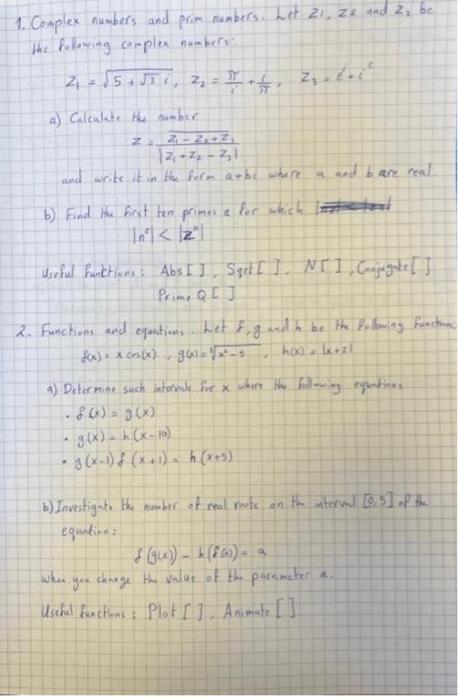 1. Complex numbers and prim numbers. Let Z1, Z2 and Z3 be
the following complex numbers:
Z1 = √(5 + √3 i), Z2 = π/i + i/π, Z3 = e^i + i^e
a) Calculate the number
Z = (Z1 - Z2 + Z3) / |Z1 + Z2 - Z3|
and write it in the form a+bi where a and b are real.
b) Find the first ten primes n for which
|n²| < |zⁿ|
Useful Funktions: Abs[ ], Sqrt[ ], N[ ], Conjugate[ ]
Prime Q [ ]
2. Functions and equations. Let f, g and h be the following function
f(x) = x cos(x), g(x) = √(x² - 5), h(x) = |x+2|
a) Determine such intervals for x where the following equations
• f(x) = g(x)
• g(x) = h(x-10)
• g(x-3) f(x+1) = h(x+5)
b) Investigate the number of real roots on the interval [0,5] of the
equation:
f(g(x)) - h(f(x)) = a
when you change the value of the parameter a.
Useful functions: Plot [ ], Animate [ ]